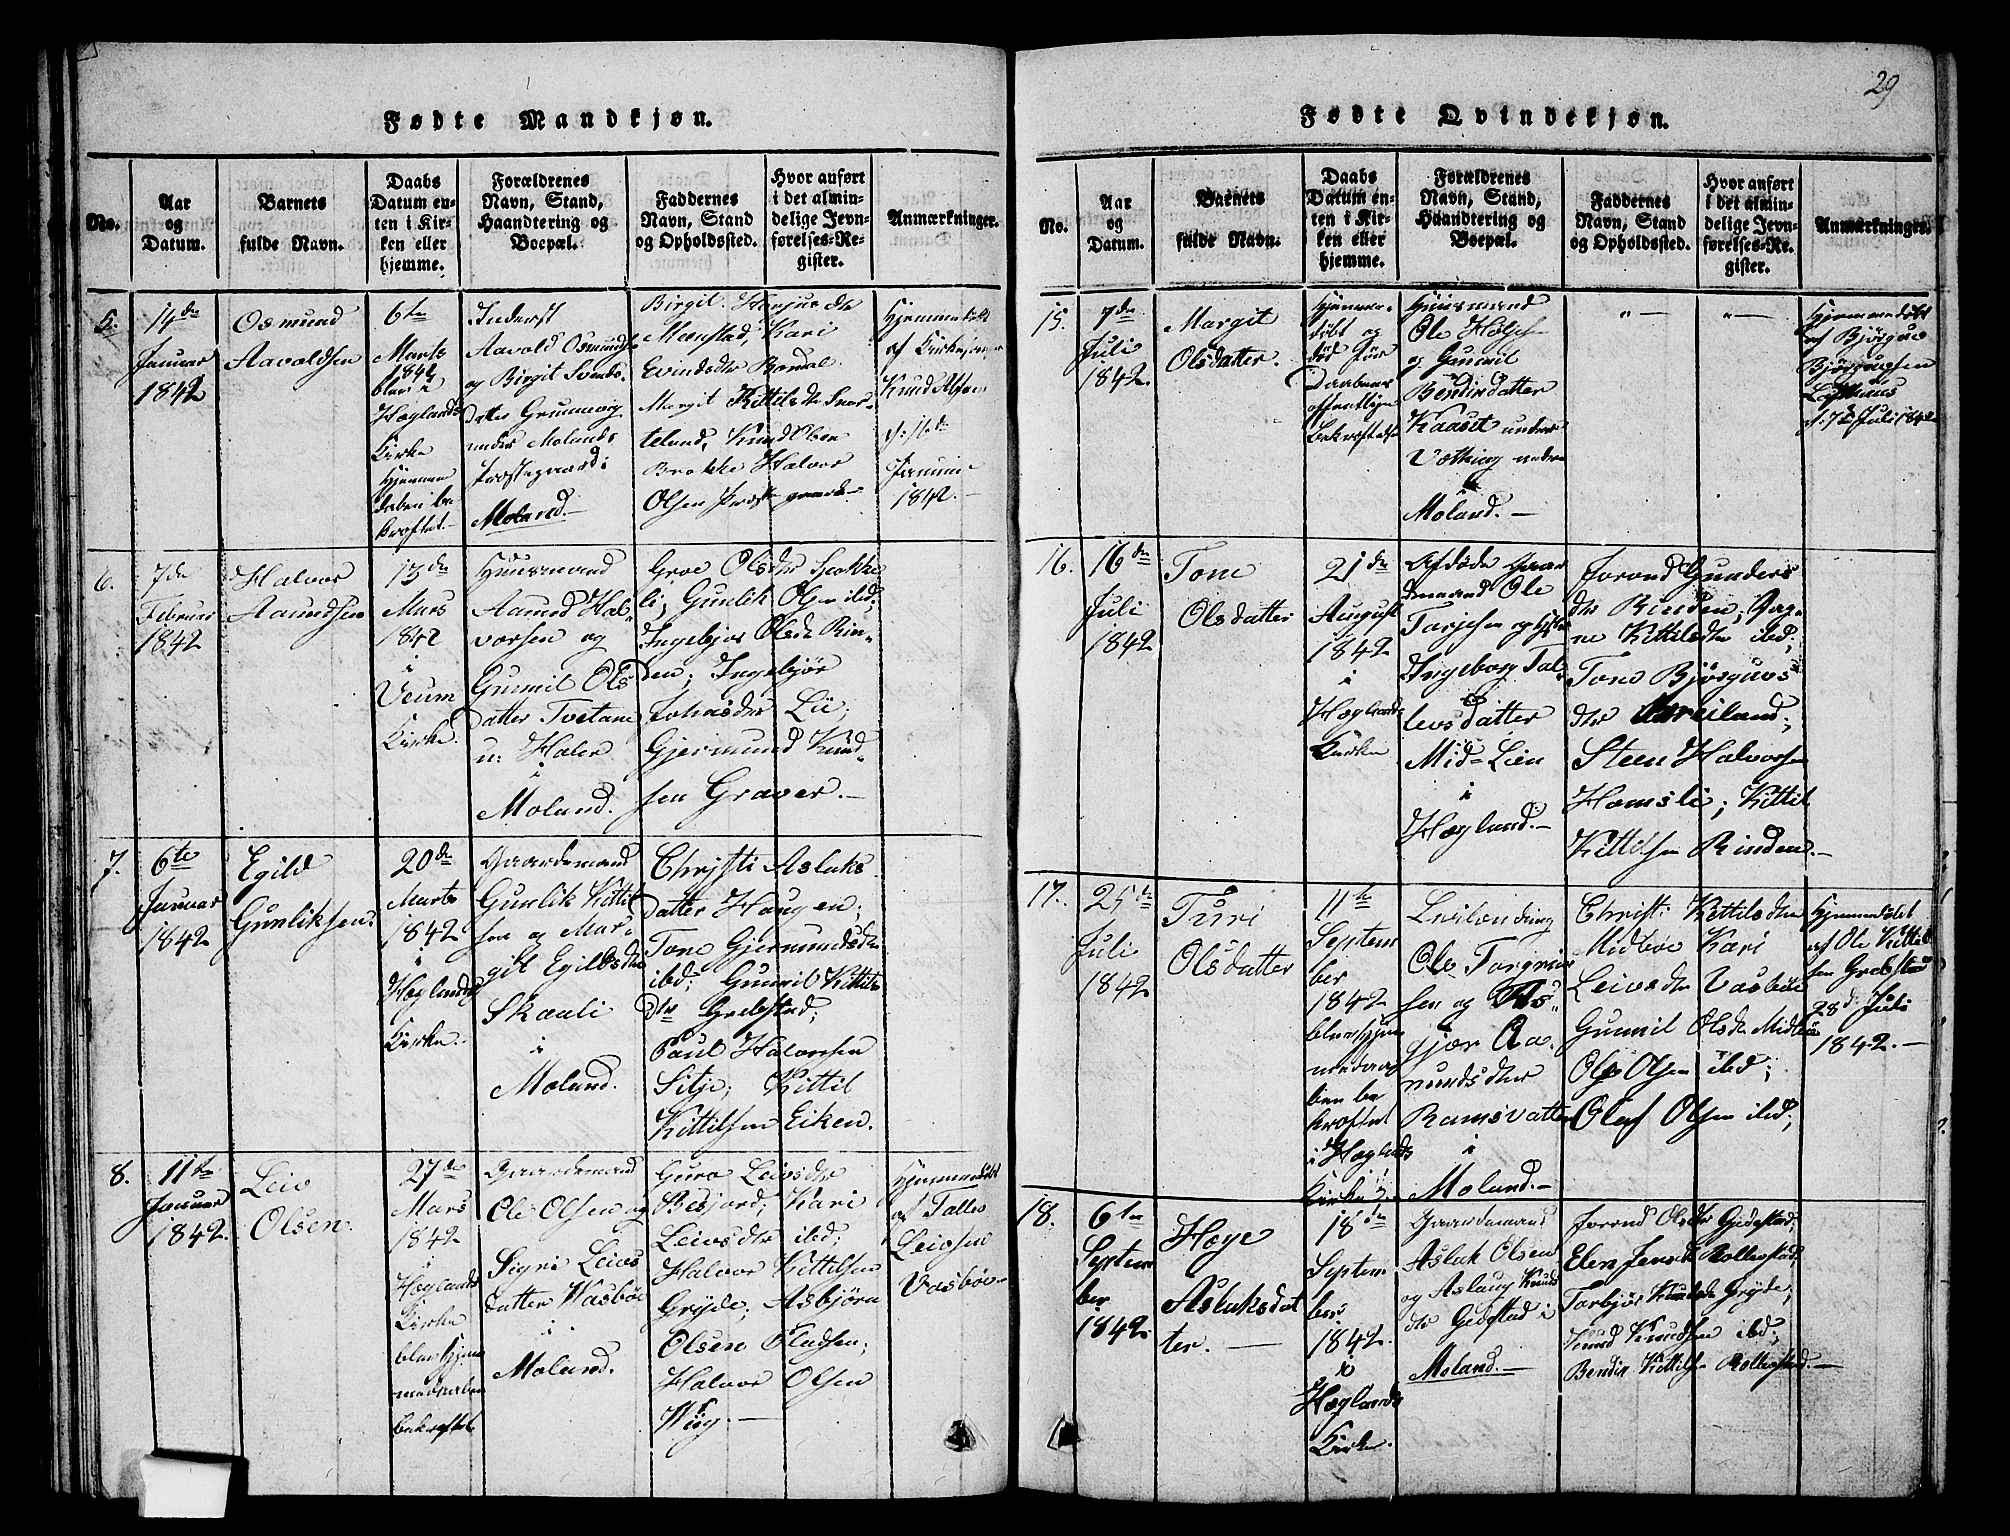 29
Fødte Mandkjøn.
No.
Aar
og
Datum.
Barnets
fulde Navn.
Daabs
Datum en-
ten i Kir-
ken eller
hjemme.
Forældrenes
Navn, Stand,
Haandtering og
Boepæl.
Faddernes
Navn, Stand
og Opholdssted.
Hvor anført
i det almin-
delige Jevn-
førelses-Re-
gister.
Anmærkninger.
5.
14de
Januar
1842
Osmund
Aavoldsen
6te
Marts
1842
blev i
Høglands
Kirke
Hjemme
daaben be
kræftet.
Inderst
Aavold Osmunds
og Birgit Svends
datter
under Molands
Præstegaard i
Moland.
Birgit
Kari
Evindsdtr
Margit Kittilsdtr
Knud Olsen
Brokke Halvor
Olsen Præstegaard
Hjemmedøbt
af Kirkesanger
Knud
d: 16de
Januar
1842.
6.
7de
Februar
1842
Halvor
Aamundsen
13de
Mars
1842
i
Veum
Kirke.
Huusmand
Aamund Hal-
vorsen og
Gunnil Ols
datter Tvetane
u:
i
Moland.
Groe Olsdtr
Gunlik Olsen ibd;
Ingebjør Olsdtr Rin-
den; Ingebjør
Lii;
Gjermund Knud-
sen Graver.
7.
6te
Januar
1842
Egild
Gunliksen.
20de
Marts
1842
i
Høglands
Kirke.
Gaardemand
Gunlik Kittil
sen og Mar
git Egildsdtr
Skaali
i
Moland.
Christi Aslaks
datter Haugen;
Tone Gjermundsdtr
ibd; Gunnil Kittils
dtr Grebstad;
Paul Halvorsen
Sitje; Kittil
Kittilsen Eiken.
8.
11te
Januar
1842.
Leiv
Olsen.
27de
Mars
1842
i
Høglands
Kirke
blev Hjem
medaaben
bekræftet.
Gaardemand
Ole Olsen og
Sigri Leivs
datter Wasbøe
i
Moland.
Guro Leivsdtr
Kari
Leivsdtr ibd;
Halvor Kittilsen
Gryde; Asbjørn
Olsen
Halvor Olsen
Wiig.
Hjemmedøbt
af Tallev
Leivsen
Vasbøe
Fødte Qvindekjøn.
No.
Aar
og
Datum.
Barnets
fulde Navn.
Daabs
Datum en-
ten i Kir-
ken eller
hjemme.
Forældrenes
Navn, Stand,
Haandtering og
Boepæl.
Faddernes
Navn, Stand
og Opholdssted.
Hvor anført
i det almin-
delige Jevn-
førelses-Re-
gister.
Anmærkninger.
15.
7de
Juli
1842.
Margit
Olsdatter.
Hjemme-
døbt og
død før
Daabens
offentlige
bekræftelse
Huusmand
Ole
og Gunnil
Bendixdatter
Kaasit under
Vætting
i
Moland.
"
"
Hjemmedøbt
af Bjørguv
Bjørguvsen
Lofthuus
d: 7de Juli 1842
16.
16de
Juli
1842
Tone
Olsdatter
21de
August
1842
i
Høglands
Kirke
Afdøde Gaar
demand Ole
Tarjesen og
Ingeborg Tal-
levsdatter
Mid-Lien
i
Høgland.
Jorond Gunders
dtr Rinden;
Kittilsdtr ibd;
Tone Bjørguvs
dtr
Steen Halvorsen
Homsli; Kittil
Kittilsen Rinden.
17.
25de
Juli
1842
Turi
Olsdatter
11te
Septem
ber
1842
blev Hjem
medaa
ben be
kræftet
i Høglands
Kirke
Ole Torgrim
sen og As-
gjær Aa-
mundsdtr
Ramsvatten
i
Moland.
Christi Kittilsdtr
Midbøe Kari
Leivsdtr Vasbøe
Gunnil Olsdtr Midbøe
Ole Olsen ibd;
Olaf Olsen ibd;
Hjemmedøbt
af Ole Kittil
sen Grebstad
28de Juli
1842.
18.
6te
Septem
ber
1842
Høge
Aslaksdat
ter.
18de
Septem
ber
1842.
i
Høglands
Kirke.
Gaardemand
Aslak Olsen
og Aslaug Knuds
dtr Gidestad i
Moland.
Jorond Olsdtr Gidestad;
Elen Rollestad;
Torbjør Knudsdtr Gryde;
Knud Knudsen ibd;
Bendix Kittilsen Rollestad.